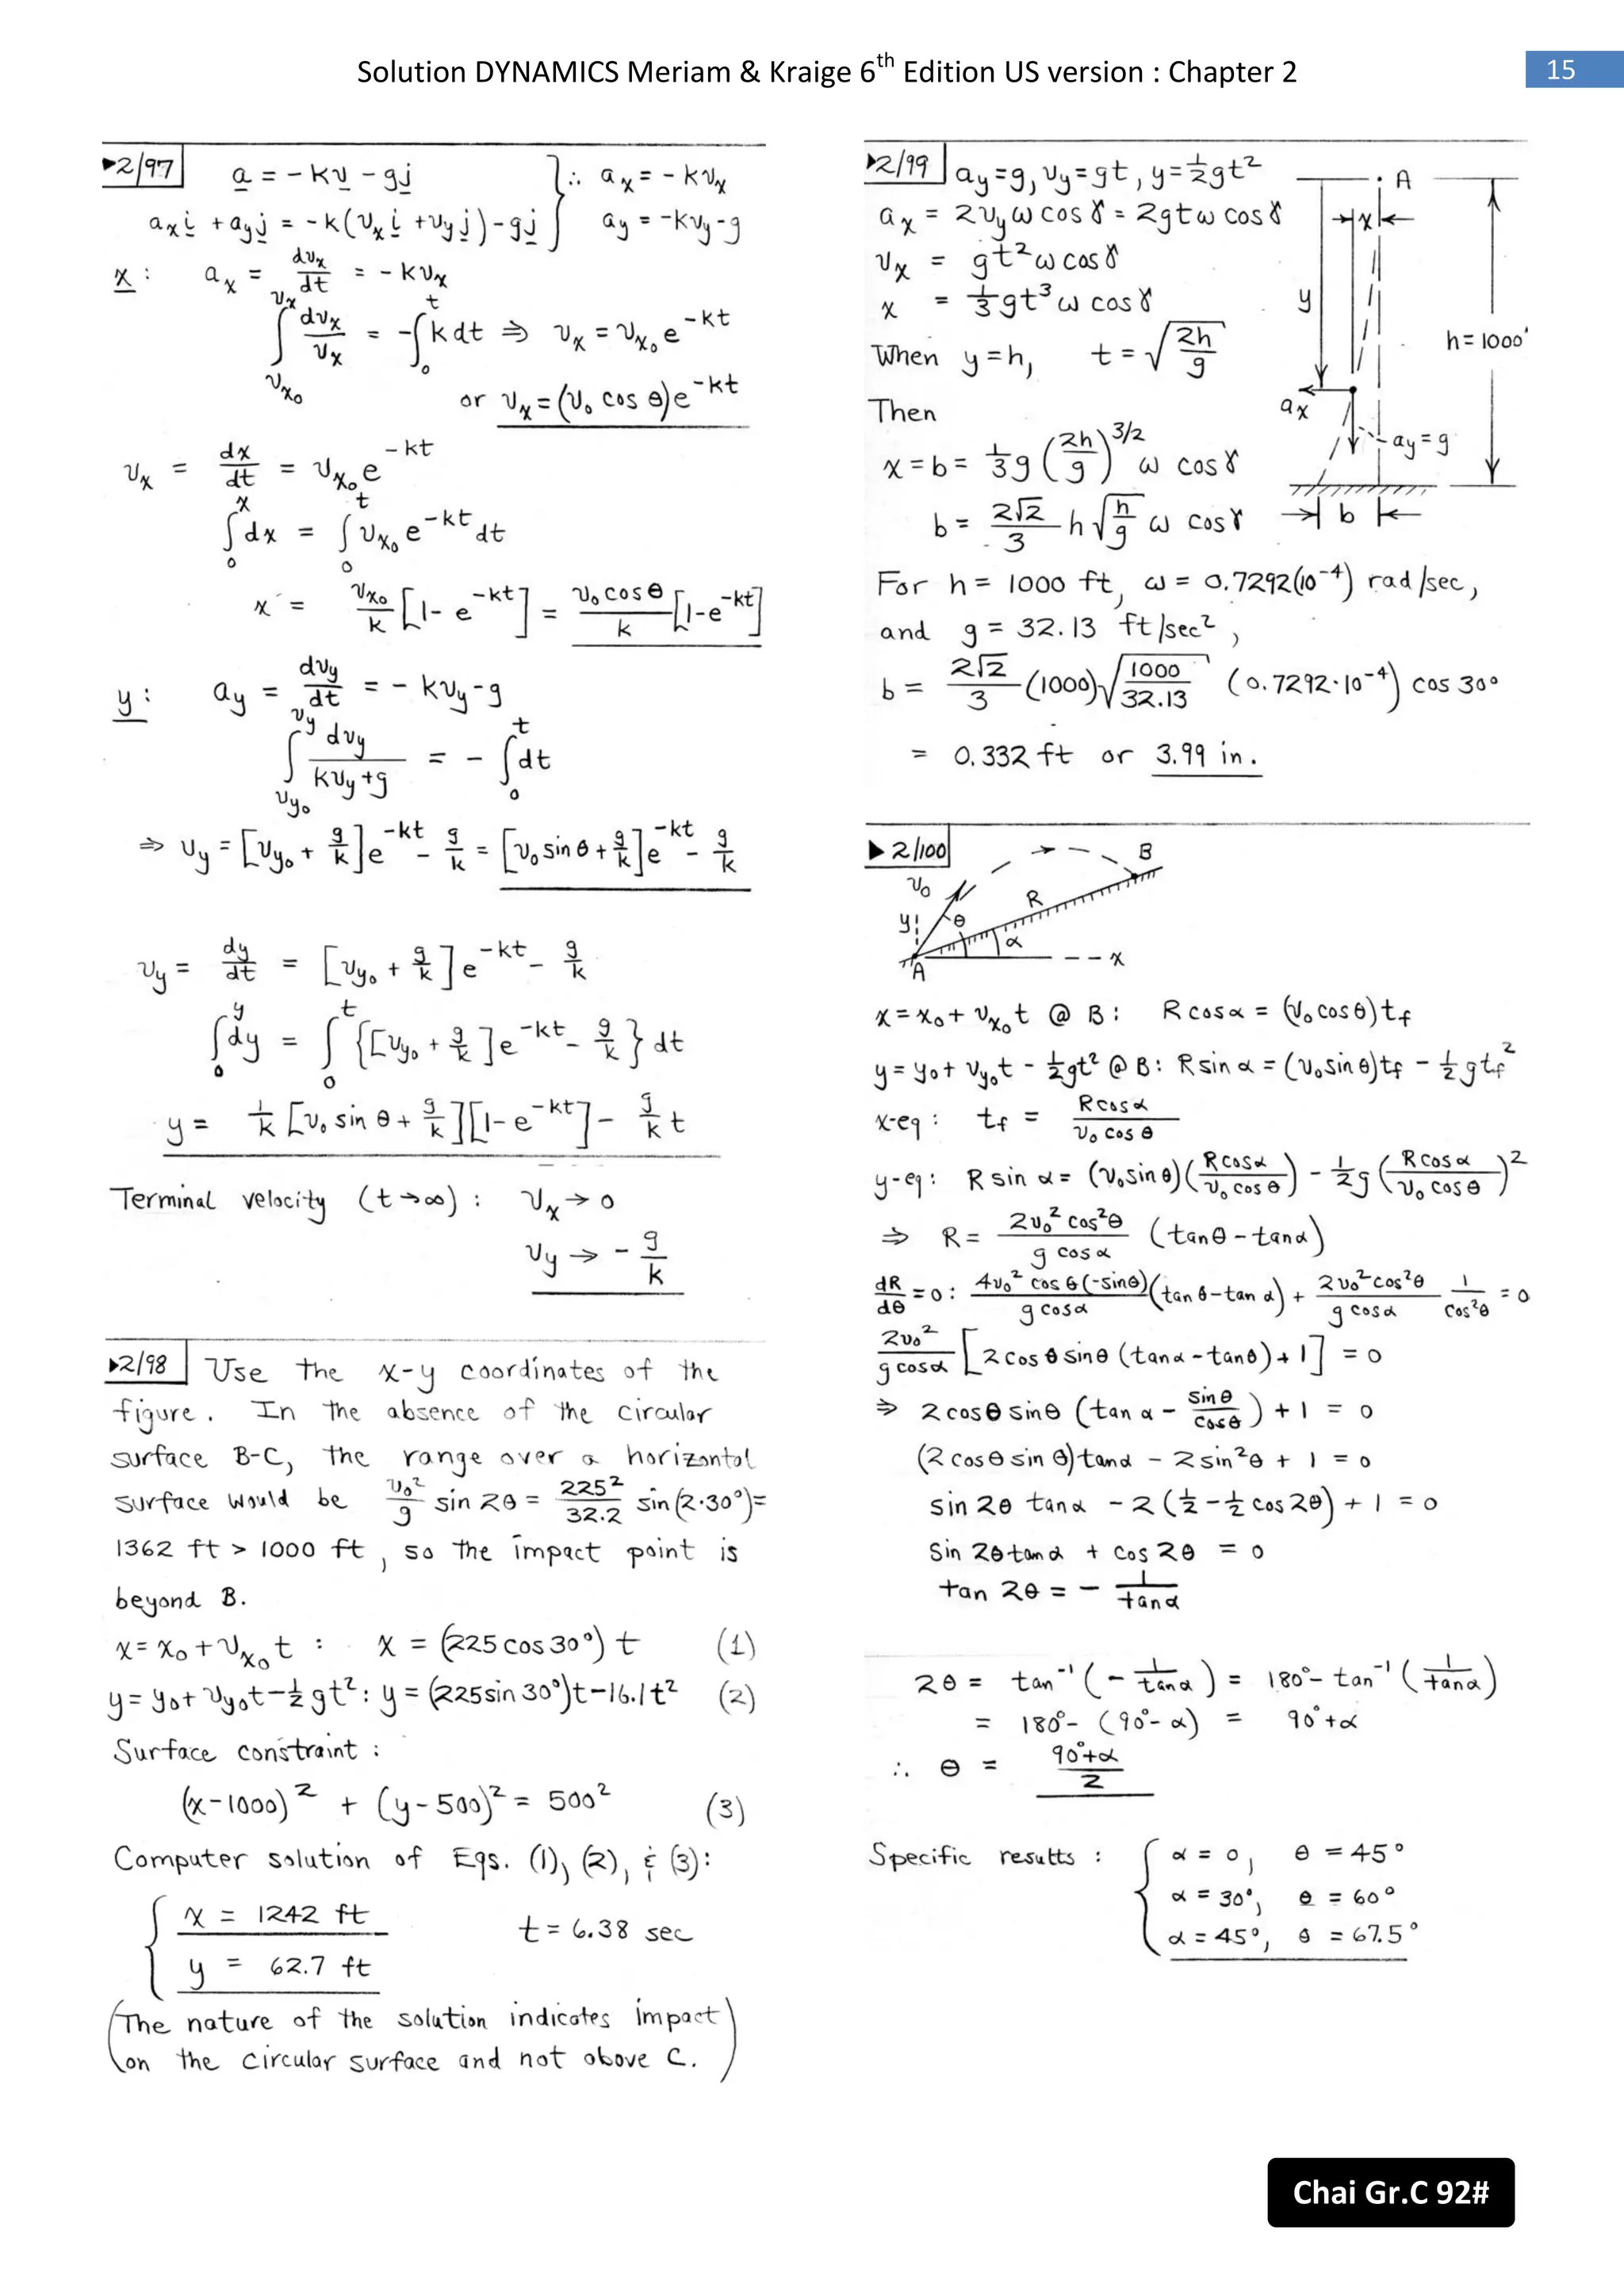 Solution DYNAMICS Meriam & Kraige 6th Edition US version : Chapter 2
15
▸2/97 a = -kv - gj
axi + ayj = -k(vxi + vyj) - gj } ∴ ax = -kvx
ay = -kvy - g
x: ax = dvx/dt = -kvx
∫_{vx0}^{vx} dvx/vx = -∫_0^t k dt ⇒ vx = vx0 e^{-kt}
or vx = (v0 cos θ)e^{-kt}
vx = dx/dt = vx0 e^{-kt}
∫_0^x dx = ∫_0^t vx0 e^{-kt} dt
x = vx0/k [1 - e^{-kt}] = v0 cos θ/k [1-e^{-kt}]
y: ay = dvy/dt = -kvy-g
∫_{vy0}^{vy} dvy/(kvy+g) = -∫_0^t dt
⇒ vy = [vy0 + g/k]e^{-kt} - g/k = [v0 sin θ + g/k]e^{-kt} - g/k
vy = dy/dt = [vy0 + g/k]e^{-kt} - g/k
∫_0^y dy = ∫_0^t {[vy0 + g/k]e^{-kt} - g/k} dt
y = 1/k [v0 sin θ + g/k][1-e^{-kt}] - g/k t
Terminal velocity (t→∞) : vx → 0
vy → -g/k
▸2/98 Use the x-y coordinates of the
figure. In the absence of the circular
surface B-C, the range over a horizontal
surface would be v0²/g sin 2θ = 225²/32.2 sin(2·30°)=
1362 ft > 1000 ft, so the impact point is
beyond B.
x = x0 + vx0 t : x = (225 cos 30°) t (1)
y = y0 + vy0 t - ½gt² : y = (225 sin 30°)t - 16.1t² (2)
Surface constraint :
(x-1000)² + (y-500)² = 500² (3)
Computer solution of Eqs. (1), (2), & (3):
{ x = 1242 ft t = 6.38 sec
y = 62.7 ft
(The nature of the solution indicates impact
on the circular surface and not above C.)
▸2/99 ay = g, vy = gt, y = ½gt²
ax = 2vy ω cos γ = 2gtω cos γ
vx = gt²ω cos γ
x = ⅓gt³ω cos γ
When y = h, t = √(2h/g)
Then
x = b = ⅓g (2h/g)^{3/2} ω cos γ
b = 2√2/3 h√(h/g) ω cos γ
A
x
y
h = 1000'
ax
ay = g
b
For h = 1000 ft, ω = 0.7292(10⁻⁴) rad/sec,
and g = 32.13 ft/sec²,
b = 2√2/3 (1000)√(1000/32.13) (0.7292·10⁻⁴) cos 30°
= 0.332 ft or 3.99 in.
▸2/100
B
v0
R
y
θ
α
A
x
x = x0 + vx0 t @ B: R cos α = (v0 cos θ)tf
y = y0 + vy0 t - ½gt² @ B: R sin α = (v0 sin θ)tf - ½gtf²
x-eq: tf = R cos α/(v0 cos θ)
y-eq: R sin α = (v0 sin θ)(R cos α/(v0 cos θ)) - ½g(R cos α/(v0 cos θ))²
⇒ R = 2v0² cos²θ/(g cos α) (tan θ - tan α)
dR/dθ = 0: 4v0² cos θ(-sin θ)/(g cos α) (tan θ - tan α) + 2v0² cos²θ/(g cos α) 1/cos²θ = 0
2v0²/(g cos α) [2 cos θ sin θ (tan α - tan θ) + 1] = 0
⇒ 2 cos θ sin θ (tan α - sin θ/cos θ) + 1 = 0
(2 cos θ sin θ) tan α - 2 sin²θ + 1 = 0
sin 2θ tan α - 2(½ - ½ cos 2θ) + 1 = 0
sin 2θ tan α + cos 2θ = 0
tan 2θ = - 1/tan α
2θ = tan⁻¹(- 1/tan α) = 180° - tan⁻¹(1/tan α)
= 180° - (90° - α) = 90° + α
∴ θ = (90° + α)/2
Specific results : { α = 0, θ = 45°
α = 30°, θ = 60°
α = 45°, θ = 67.5°
Chai Gr.C 92#